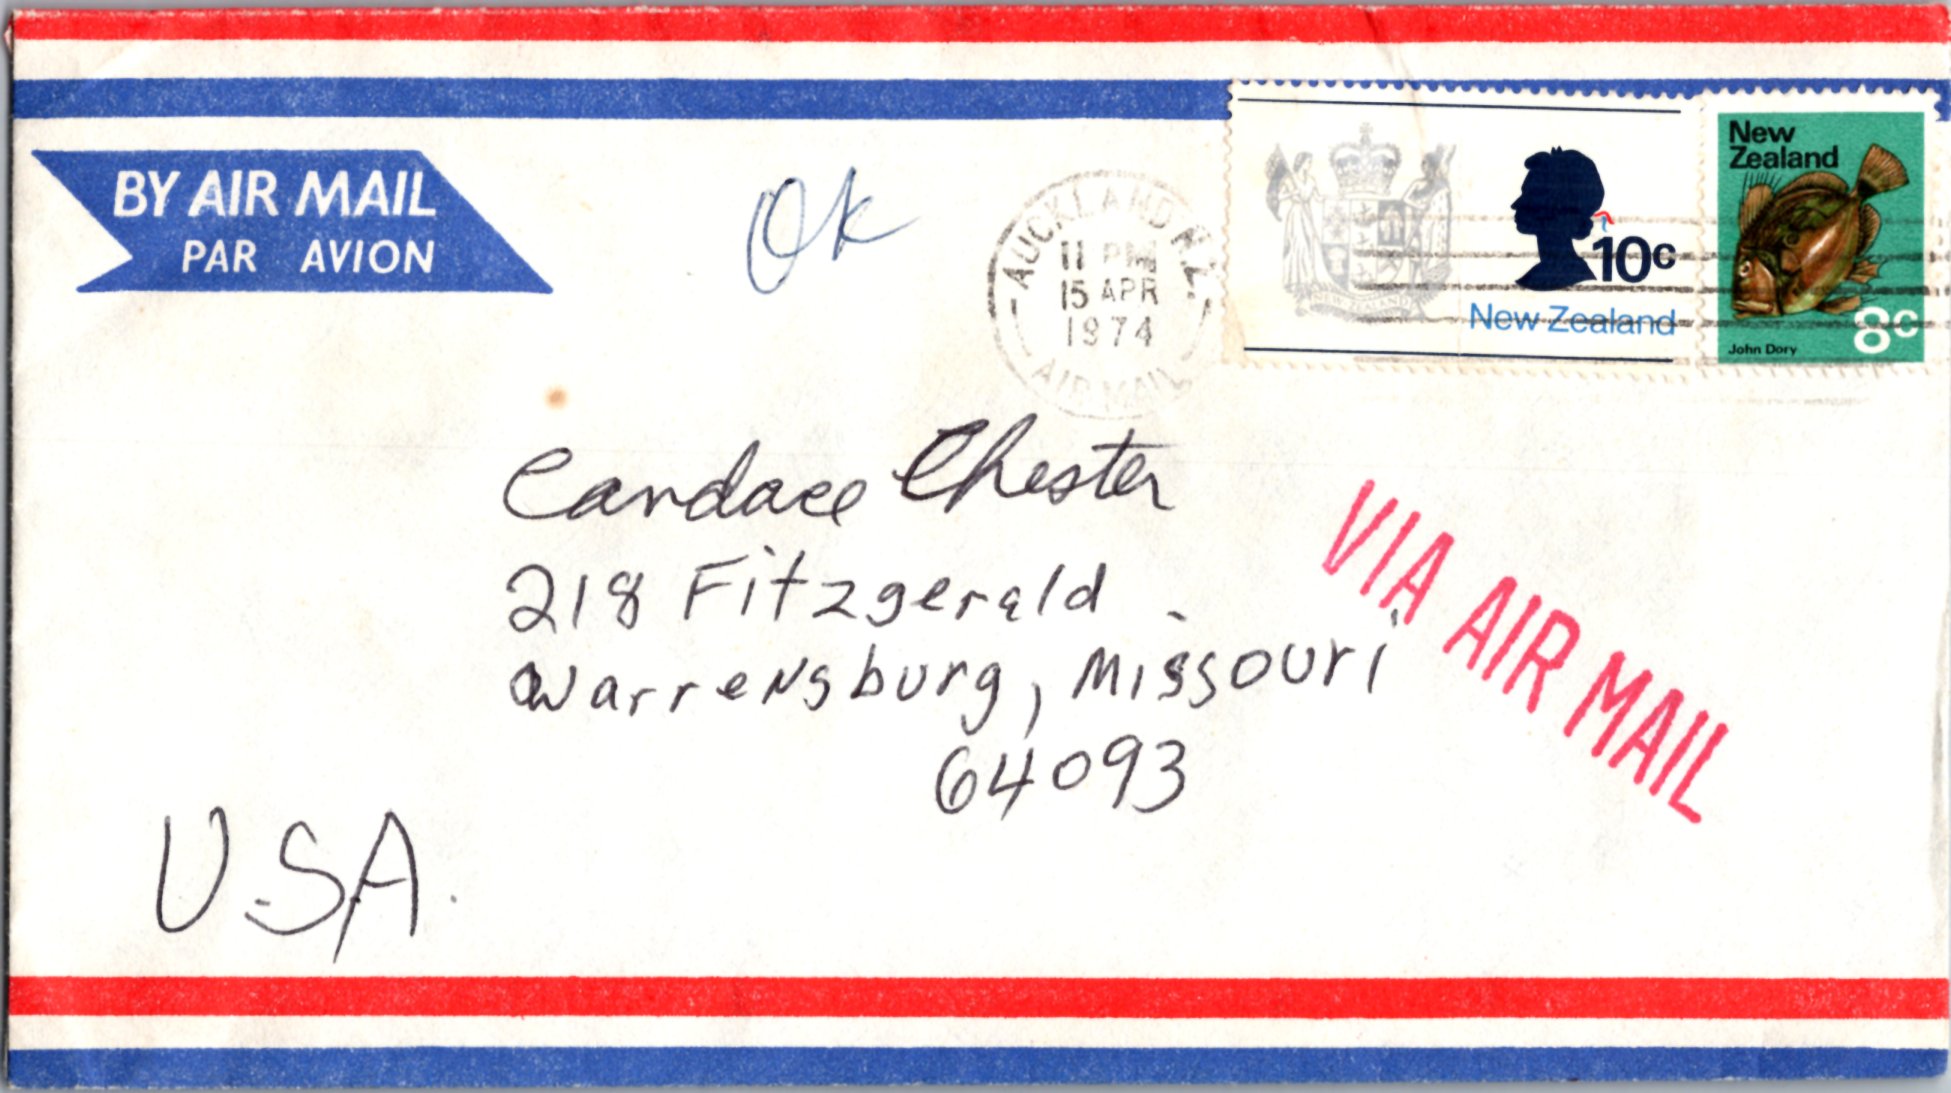 BY AIR MAIL
PAR AVION
Ok
AUCKLAND N.Z.
11 PM
15 APR
1974
AIR MAIL
NEW ZEALAND
10c
New Zealand
New
Zealand
8c
John Dory
Candace Chester
218 Fitzgerald
Warrensburg, Missouri
64093
U.S.A.
VIA AIR MAIL